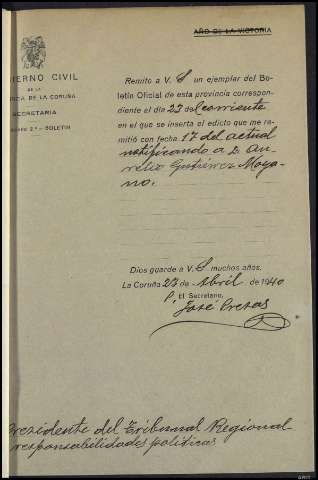 AÑO DE LA VICTORIA
IERNO CIVIL
DE LA
NCIA DE LA CORUÑA
SECRETARIA
2.º - BOLETIN
Remito a V. S un ejemplar del Bo-
letín Oficial de esta provincia correspon-
diente al día 23 del corriente
en el que se inserta el edicto que me re-
mitió con fecha 17 del actual
notificando a D. Au-
relio Gutiérrez Moya-
no.
Dios guarde a V. S muchos años.
La Coruña 23 de Abril de 1940
P. El Secretario,
José
residente del Tribunal Regional
responsabilidades políticas